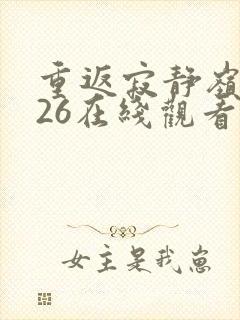 重返寂静嶺
26在綫觀看
女主是我崽